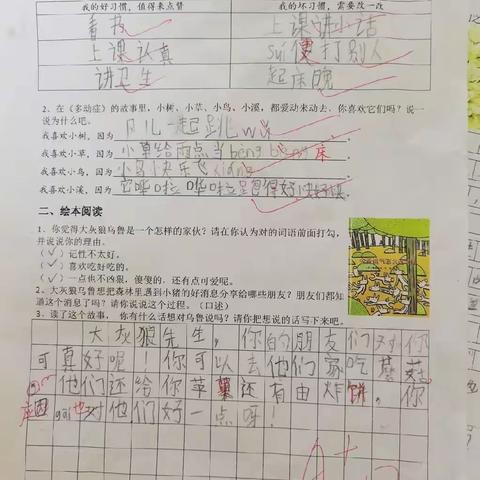 我的好习惯，值得来点赞 我的坏习惯，需要改一改
看书 上课讲小话
上课认真 suí便打别人
讲卫生 起床晚
2、在《多动症》的故事里，小树、小草、小鸟、小溪，都爱动来动去。你喜欢它们吗？说一
说为什么吧。
我喜欢小树，因为 风儿一起跳wǔ
我喜欢小草，因为 小草给雨点当bèng 床
我喜欢小鸟，因为 小鸟快乐飞xiáng
我喜欢小溪，因为 它哗啦哗啦
二、绘本阅读
1、你觉得大灰狼乌鲁是一个怎样的家伙？请在你认为对的词语前面打勾，
并说说你的理由。
（✓）记性不太好。
（✓）喜欢吃好吃的。
（✓）一点也不凶狠，傻傻的，还有点可爱呢。
2、大灰狼乌鲁想把森林里遇到小猪的好消息分享给哪些朋友？朋友们都知
道这个消息了吗？请你说说这个过程。（口述）
3、读了这个故事，你有什么话想对乌鲁说吗？请你把想说的话写下来吧。
大灰狼先生，你的朋友们对你
可真好呢！你可以去他们家吃蘑菇
他们还给你苹果还有由炸饼，你
应因gāi也对他们好一点呀！